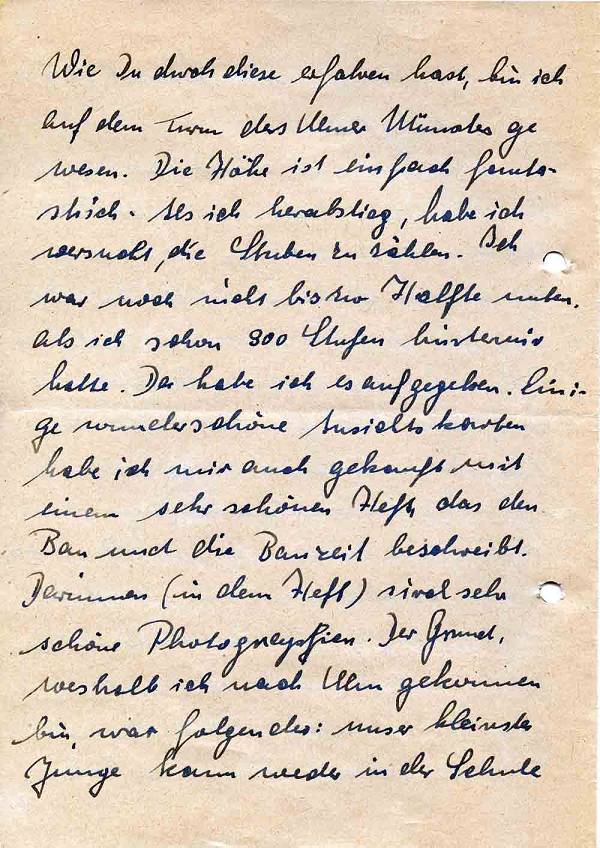 Wie Du durch diese erfahren hast, bin ich
auf dem Turm des Ulmer Münsters ge
wesen. Die Höhe ist einfach fanta-
stisch. Als ich herabstieg, habe ich
versucht, die Stuben zu zählen. Ich
war noch nicht bis zur Hälfte unten,
als ich schon 800 Stufen hintermir
hatte. Da habe ich es aufgegeben. Eini-
ge wunderschöne Ansichtskarten
habe ich mir auch gekauft mit
einem sehr schönen Heft, das den
Bau und die Bauzeit beschreibt.
Darinnen (in dem Heft) sind sehr
schöne Photograpfien. Der Grund,
weshalb ich nach Ulm gekommen
bin, war folgender: unser kleinster
Junge kann weder in der Schule